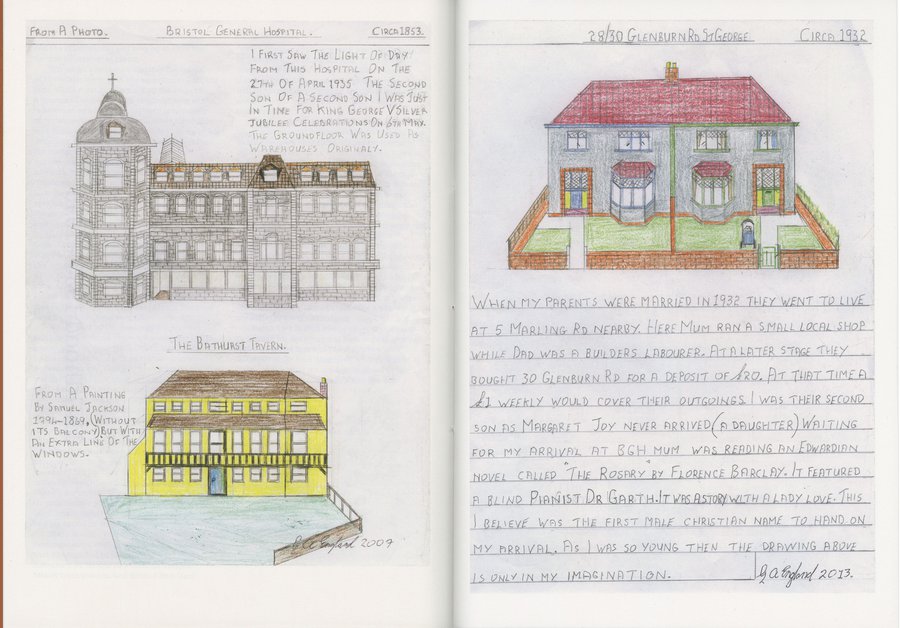 From A Photo. Bristol General Hospital. Circa 1853.
I First Saw The Light Of Day
From This Hospital On The
27th Of April 1935 The Second
Son Of A Second Son I Was Just
In Time For King George V Silver
Jubilee Celebrations On 6th May.
The Groundfloor Was Used As
Warehouses Originaly.
The Bathurst Tavern.
From A Painting
By Samuel Jackson
1794-1869, (Without
Its Balcony) But With
An Extra Line Of The
Windows.
G A England 2009
28/30 Glenburn Rd St George Circa 1932
When my parents were married in 1932 they went to live
at 5 Marling Rd nearby. Here Mum ran a small local shop
while Dad was a builders labourer. At a later stage they
bought 30 Glenburn Rd for a deposit of £20. At that time a
£1 weekly would cover their outgoings. I was their second
son as Margaret Joy never arrived (a daughter) Waiting
for my arrival at BGH Mum was reading an Edwardian
novel called "The Rosary" by Florence Barclay. It featured
a blind Pianist Dr Garth. It was a story with a lady love. This
I believe was the first male christian name to hand on
my arrival. As I was so young then the drawing above
is only in my imagination. G A England 2013.